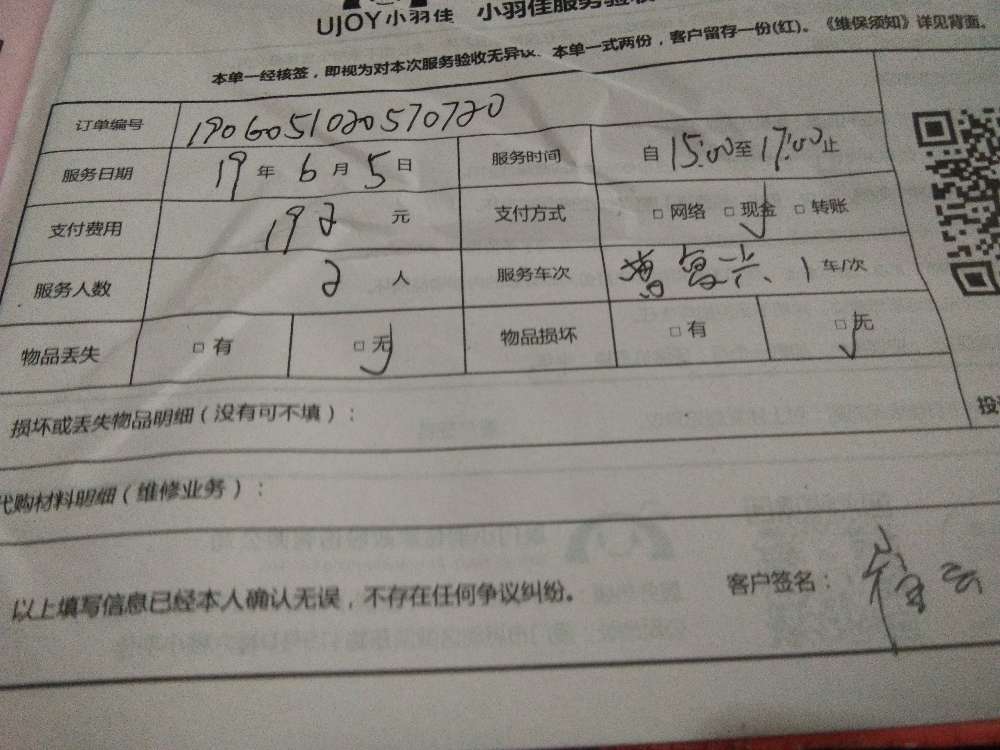 UJOY小羽佳 小羽佳服务验收
本单一经核签，即视为对本次服务验收无异议、本单一式两份，客户留存一份(红)。《维保须知》详见背面。
订单编号 1906051020570720
服务日期 19 年 6 月 5 日 服务时间 自 15:00 至 17:00 止
支付费用 192 元 支付方式 □ 网络 □ 现金 □ 转账
服务人数 2 人 服务车次 1 车/次
物品丢失 □ 有 □ 无 物品损坏 □ 有 □ 无
损坏或丢失物品明细（没有可不填）：
代购材料明细（维修业务）：
以上填写信息已经本人确认无误，不存在任何争议纠纷。 客户签名：